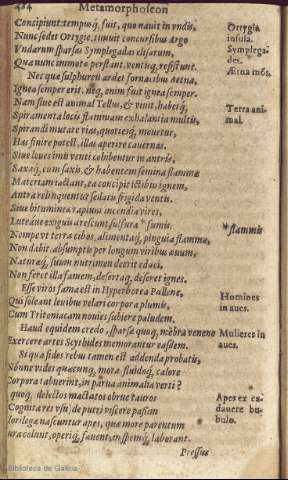 484 Metamorphoseon
Concipiunt. tempusq́; fuit, quo nauit in vndis,
Nunc sedet Ortygie. timuit concursibus Argo
Vndarum sparsas Symplegadas elisarum,
Quæ nunc immotæ perstant, ventisq́; resistunt.
Nec quæ sulphureis ardet fornacibus Aetna,
Ignea semper erit. neq; enim fuit ignea semper.
Nam siue est animal Tellus, & viuit, habetq́;
Spiramenta locis flammam exhalantia multis,
Spirandi mutare vias, quotiesq́; mouetur,
Has finire potest, illas aperire cauernas.
Siue leues imis venti cohibentur in antris,
Saxaq́; cum saxis, & habentem semina flammæ
Materiam iactant, ea concipit ictibus ignem,
Antra relinquentur sedatis frigida ventis.
Siue bitumineæ rapiunt incendia vires,
Luteáue exiguis arescunt sulfura * fumis.
Nempe vt terra cibos, alimentaq́; pinguia flammæ,
Non dabit, absumptis per longum viribus æuum,
Naturæq́; suum nutrimen deerit edaci,
Non feret illa famem, desertaq́; deseret ignes.
Esse viros fama est in Hyperborea Pallene,
Qui soleant leuibus velari corpora plumis,
Cum Tritoniacam nouies subiere paludem.
Haud equidem credo, sparsæ quoq; mēbra veneno
Exercere artes Scythides memorantur easdem.
Si qua fides rebus tamen est addenda probatis,
Nonne vides quæcunq; mora, fluidoq́; calore
Corpora tabuerint, in parua animalia verti?
quoq; delectos mactatos obrue tauros
Cognita res vsu; de putri viscere passim
Florilegæ nascuntur apes, quæ more parentum
rura colunt, operiq́; fauent, in spemq́; laborant.
Pressus
Ortygia
insula.
Symplega-
des.
Ætna mōs.
Terra ani-
mal.
* flammis
Homines
in aues.
Mulieres in
aues.
Apes ex ca-
dauere bu-
bulo.
Biblioteca de Galicia